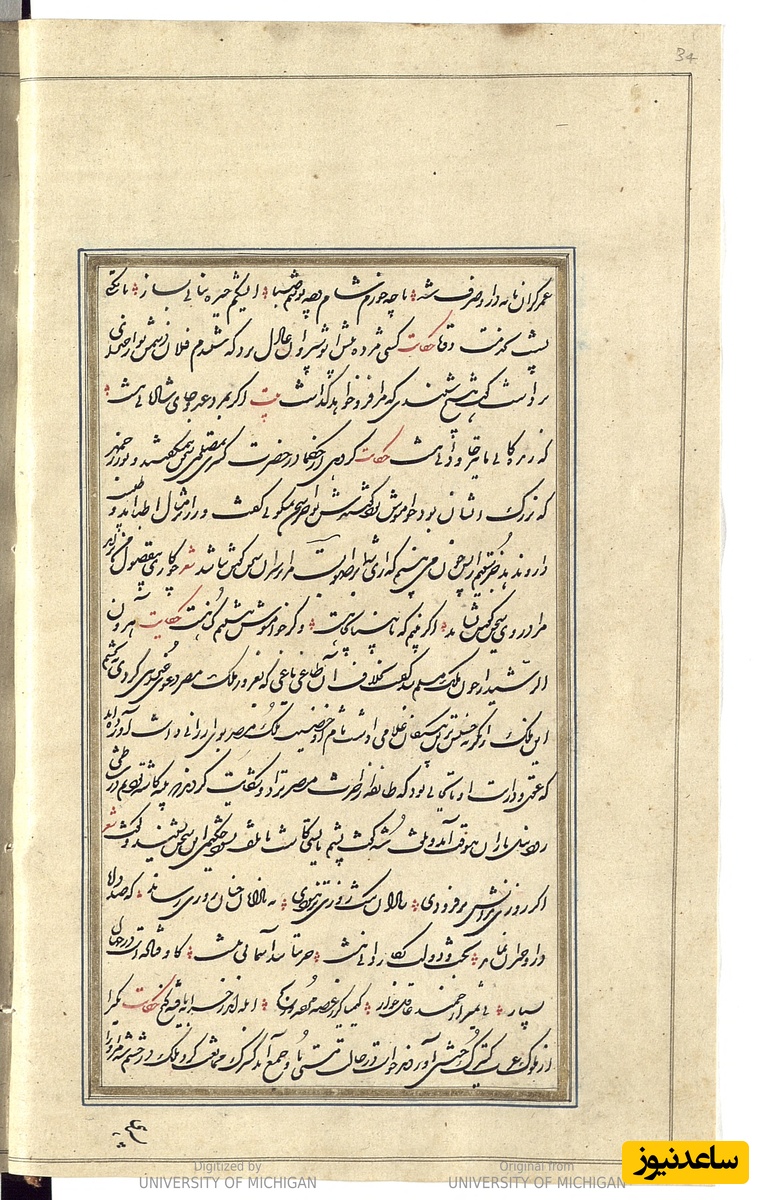 34
عمر گرانمایه در این صرف شد تا چه خورم صیف و چه پوشم شتا ای شکم خیره بنانی بساز تا نکنی
پشت بخدمت دوتا حکایت کسی مژده پیش انوشیروان عادل برد که شنیدم فلان دشمن ترا خدای
برداشت گفت هیچ شنیدی که مرا فرو خواهد گذاشت بیت اگر بمرد عدو جای شادمانی نیست
که زندگانی ما نیز جاودانی نیست حکایت گروهی از حکما در حضرت کسری بمصلحتی سخن همیگفتند و بوزرجمهر
که بزرگ ایشان بود خاموش بود گفتندش چرا سخن نگوئی گفت وزرا بر مثال اطبا اند و طبیب
دارو ندهد جز سقیم را پس چون می بینم که رای شما بر صوابست مرا بر آن سخن گفتن نباشد شعر چو کاری بیفضول من برآید
مرا در وی سخن گفتن نشاید اگر بینم که نابینا و چاهست وگر خاموش بنشینم گناهست حکایت هارون
الرشید را چون ملک مصر مسلم شد گفت بخلاف آن طاغی که بغرور ملک مصر دعوی خدائی کرد نبخشم
این ملک را مگر بخسیس‌ترین بندگان غلامی داشت نام او خضیب ملک مصر بوی ارزانی داشت آورده‌اند
که عقل و درایت او تا بجائی بود که طائفه از حراث مصر نزد او شکایت کردند که پنبه کاشته بودیم در طرف
رود نیل باران بیوقت آمد و تلف شد گفت پشم بایستی کاشت تا تلف نشدی حکیمی این سخن بشنید و گفت شعر
اگر روزی بدانش بر فزودی ز نادان تنگ روزی‌تر نبودی بنادانان چنان روزی رساند که صد دانا
در او حیران بماند بخت و دولت بکاردانی نیست جز بتایید آسمانی نیست
بی تمیز ارجمند عاقل خوار کیمیاگر بغصه مرده و رنج ابله اندر خرابه یافته گنج حکایت یکیرا
از ملوک کنیزک چینی آوردند خواست در حالت مستی با وی جمع آید کنیزک ممانعت کرد ملک در خشم شد و مر او را
Digitized by
UNIVERSITY OF MICHIGAN
Original from
UNIVERSITY OF MICHIGAN
ساعدنیوز